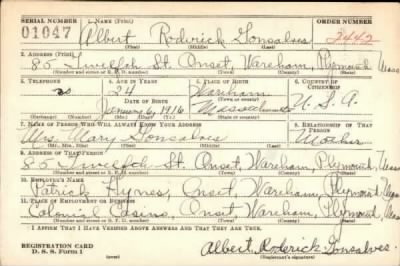 SERIAL NUMBER 1. NAME (Print) ORDER NUMBER
01047 Albert Roderick Gonsalves 2442
(First) (Middle) (Last)
2. ADDRESS (Print)
85 Twelfth St. Onset, Wareham, Plymouth, Mass
(Number and street or R. F. D. number) (Town) (County) (State)
3. TELEPHONE 4. AGE IN YEARS 5. PLACE OF BIRTH 6. COUNTRY OF CITIZENSHIP
no 24 Wareham
DATE OF BIRTH (Town or county)
January 6, 1916 Massachusetts U.S.A.
(Mo.) (Day) (Yr.) (State or country)
7. NAME OF PERSON WHO WILL ALWAYS KNOW YOUR ADDRESS 8. RELATIONSHIP OF THAT PERSON
Mrs. Mary Gonsalves Mother
(Mr., Mrs., Miss) (First) (Middle) (Last)
9. ADDRESS OF THAT PERSON
85 Twelfth St. Onset, Wareham, Plymouth, Mass
(Number and street or R. F. D. number) (Town) (County) (State)
10. EMPLOYER'S NAME
Patrick Hynes, Onset, Wareham, Plymouth, Mass
11. PLACE OF EMPLOYMENT OR BUSINESS
Colonial Casino, Onset Wareham, Plymouth, Mass
(Number and street or R. F. D. number) (Town) (County) (State)
I AFFIRM THAT I HAVE VERIFIED ABOVE ANSWERS AND THAT THEY ARE TRUE.
REGISTRATION CARD
D. S. S. Form 1 (over) Albert Roderick Gonsalves.
(Registrant's signature)